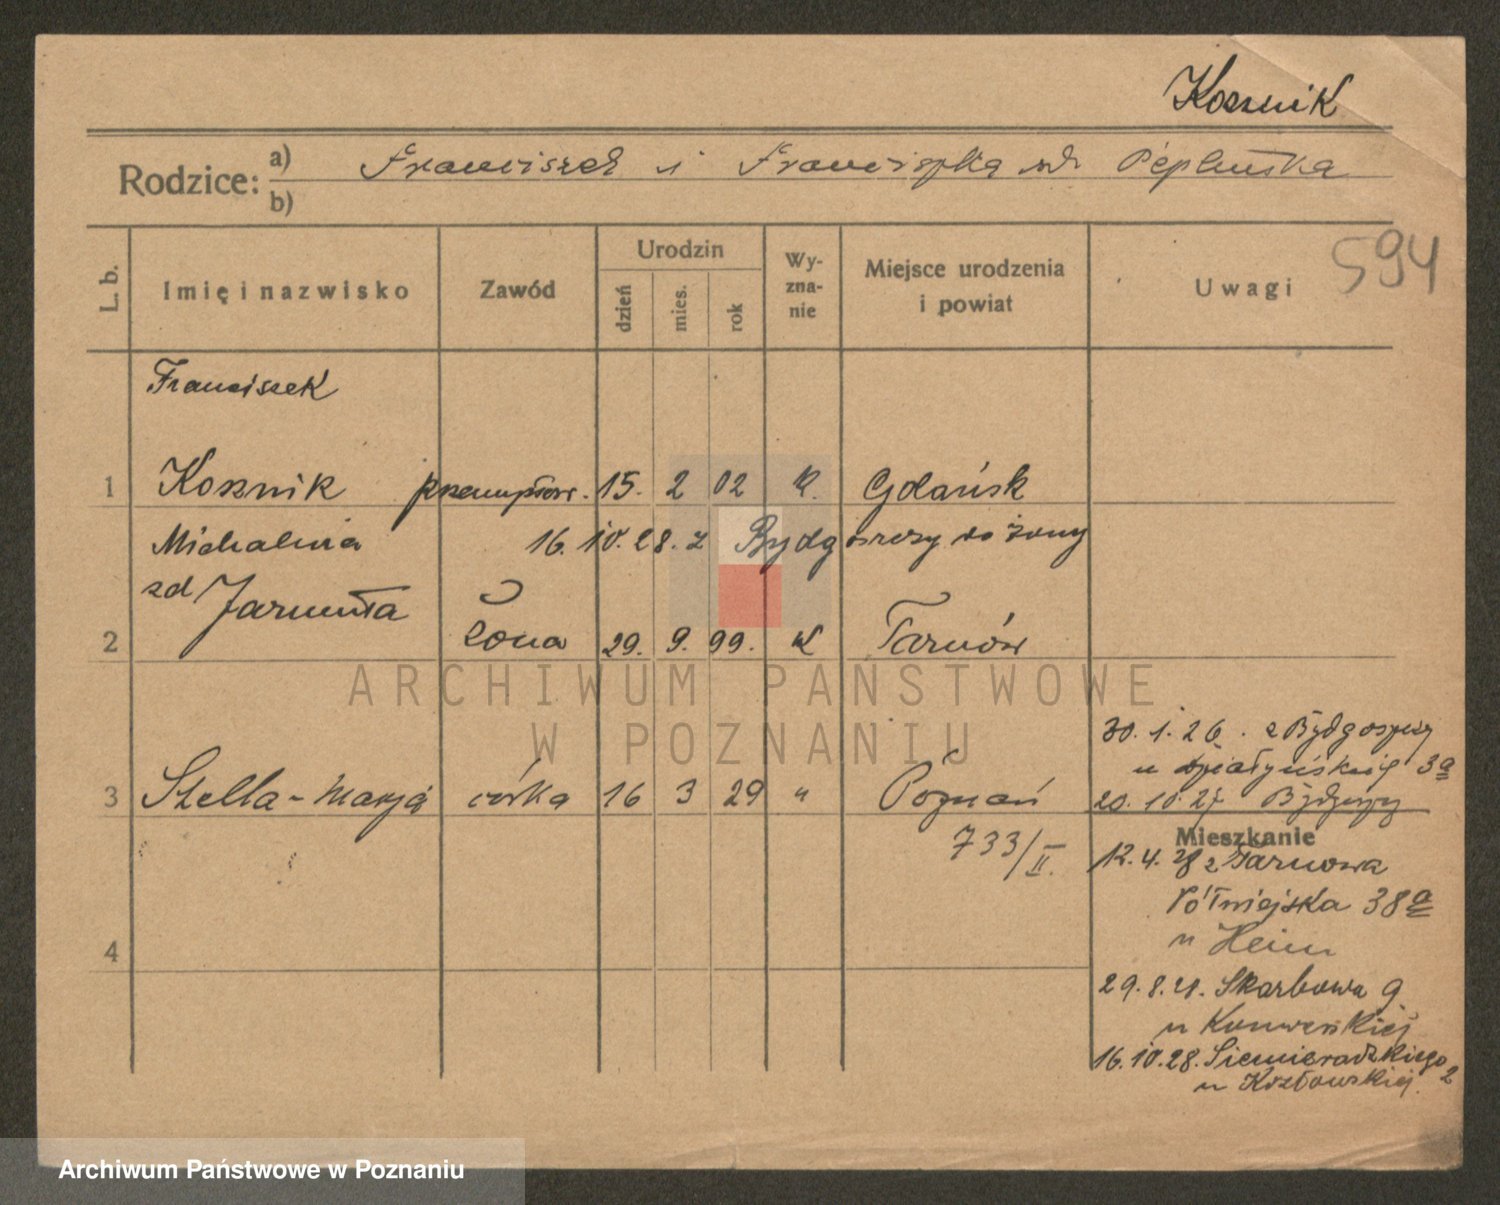 Kosznik
Rodzice: a) Franciszek i Franciszka zd. Peplińska
b)
594
L. b. Imię i nazwisko Zawód Urodzin dzień mies. rok Wy-zna-nie Miejsce urodzenia i powiat Uwagi
Franciszek
1 Kosznik przemysłow. 15. 2 02 k. Gdańsk
Michalina 16.10.28. z Bydgoszczy do żony
zd Jarmuła
2 żona 29. 9. 99. k Tarnów
30. 1. 26. z Bydgoszczy
u Działyńskiej 3a
3 Stella-Marja córka 16 3 29 " Poznań 20.10.27 Bydgoszcz
733/II.
Mieszkanie
12. 4. 28 z Tarnowa
Półwiejska 38a
u Heim
4
29. 8. 28. Skarbowa 9
u
16.10.28. Siemieradzkiego 2
u Kozłowskiej
ARCHIWUM PAŃSTWOWE
W POZNANIU
Archiwum Państwowe w Poznaniu